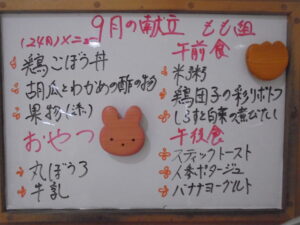 9月の献立 もも組
(24日)メニュー
鶏ごぼう丼
胡瓜とわかめの酢の物
果物(柿)
おやつ
丸ぼうろ
牛乳
午前食
米粥
鶏団子の彩りポトフ
しらすと白菜の煮びたし
午後食
スティックトースト
人参ポタージュ
バナナヨーグルト